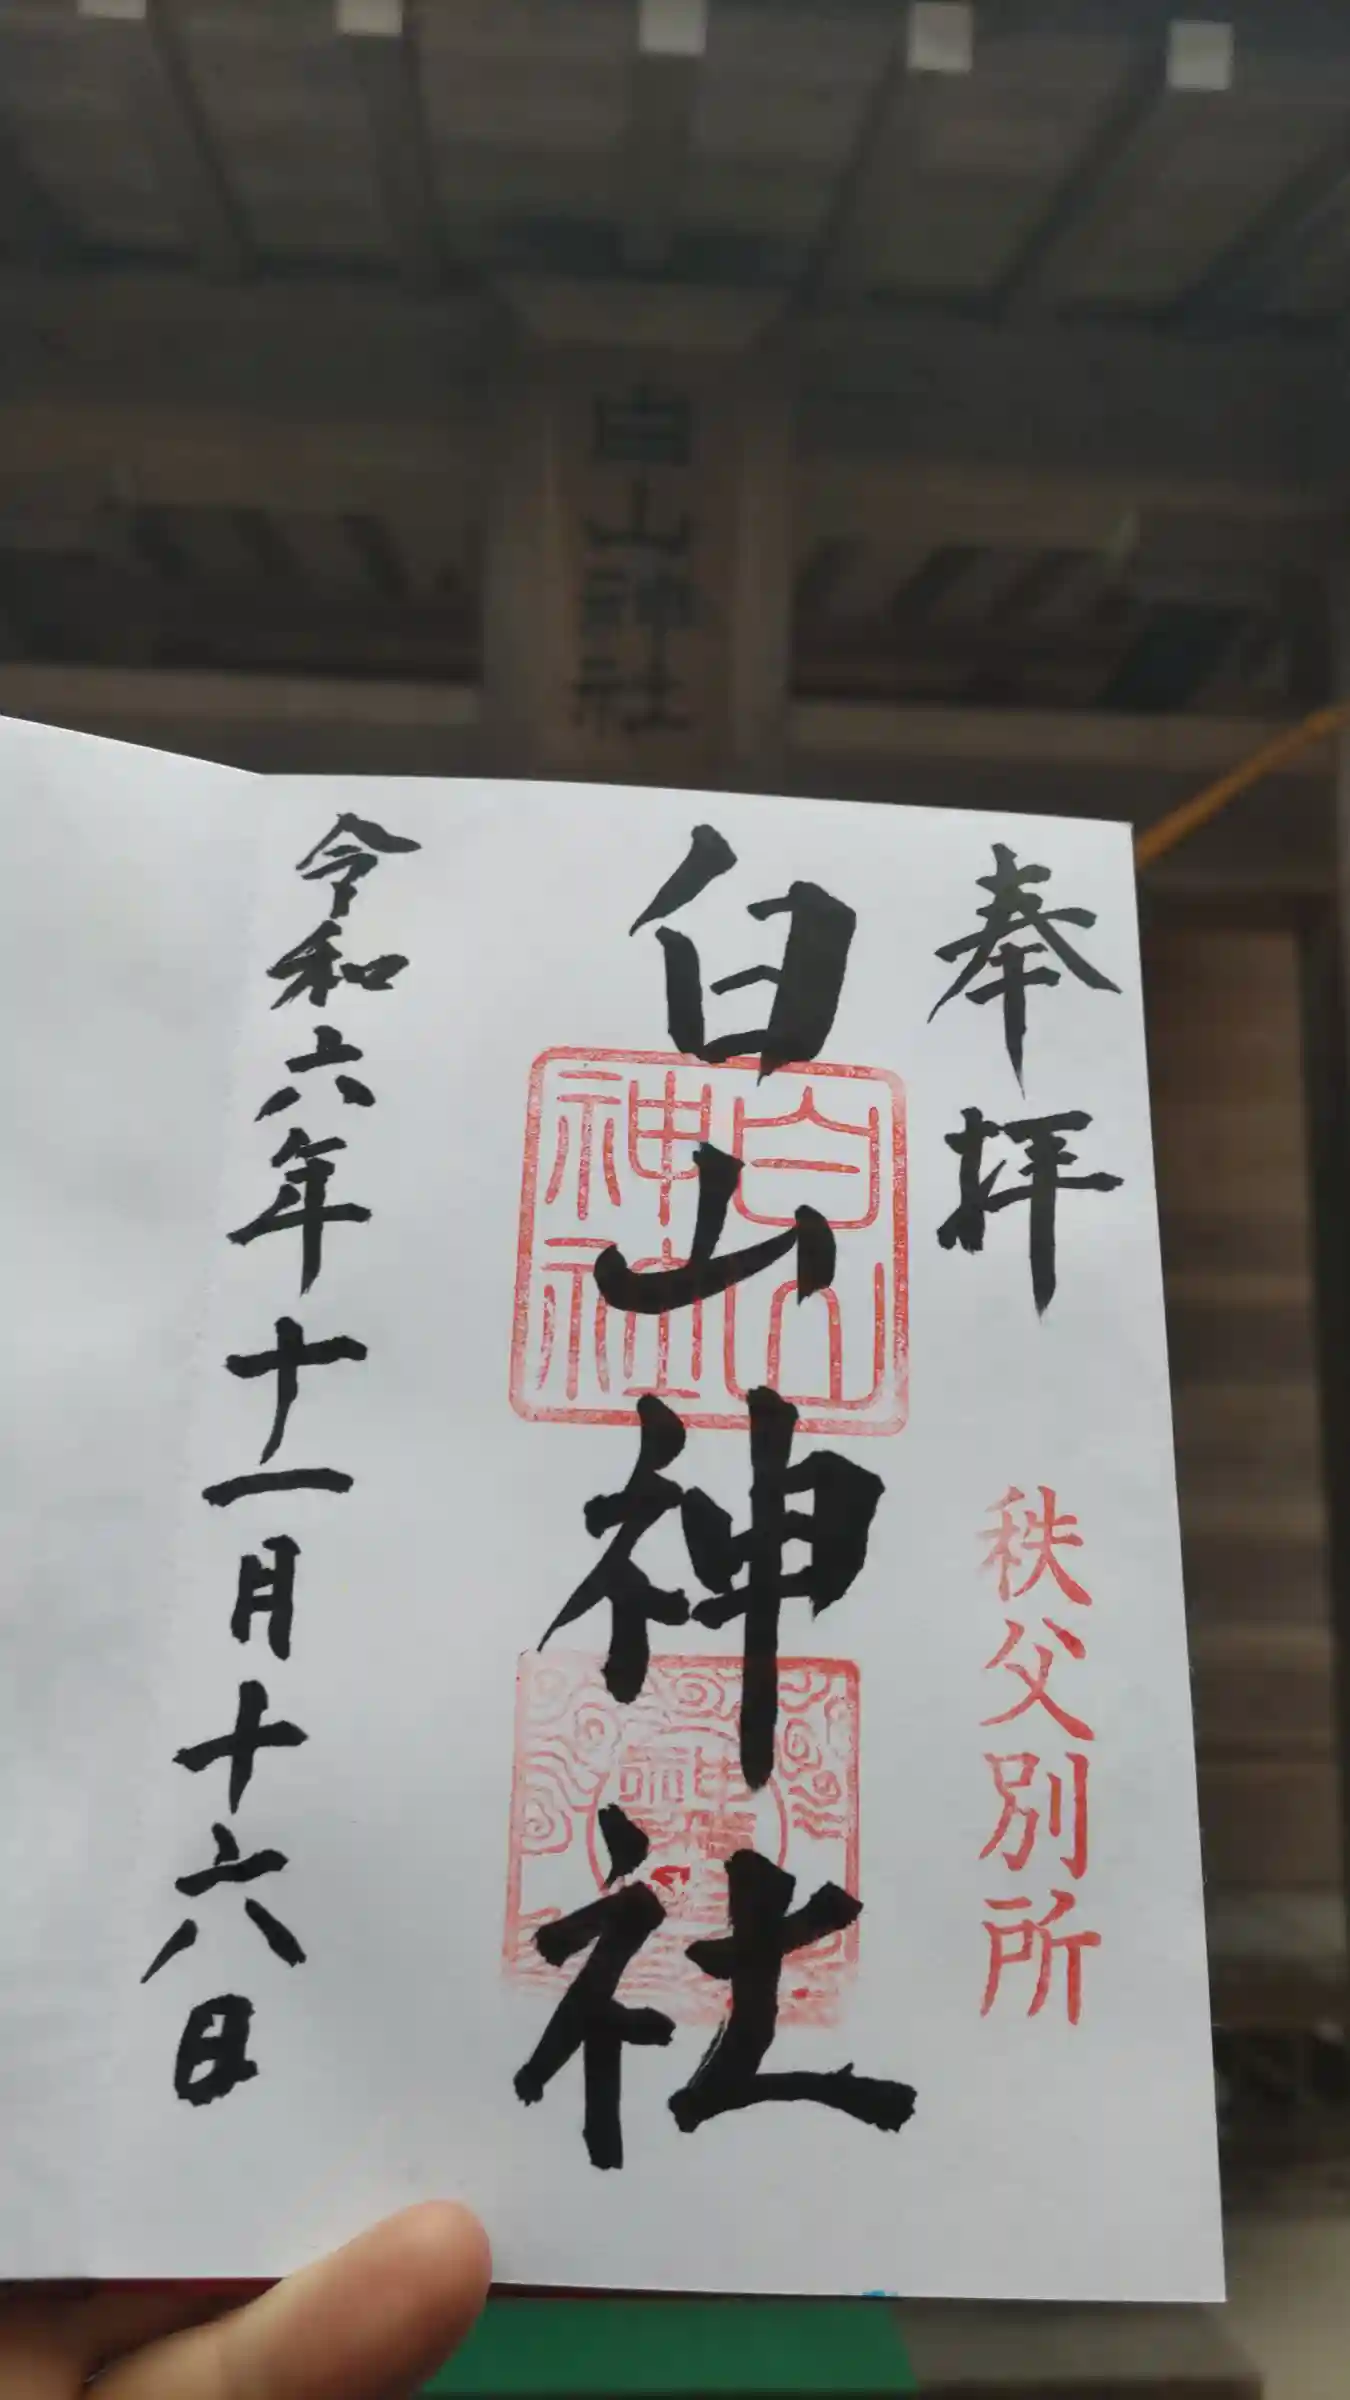 白山神社
奉拝
秩父別所
白山神社
白山神社
令和六年十一月十六日